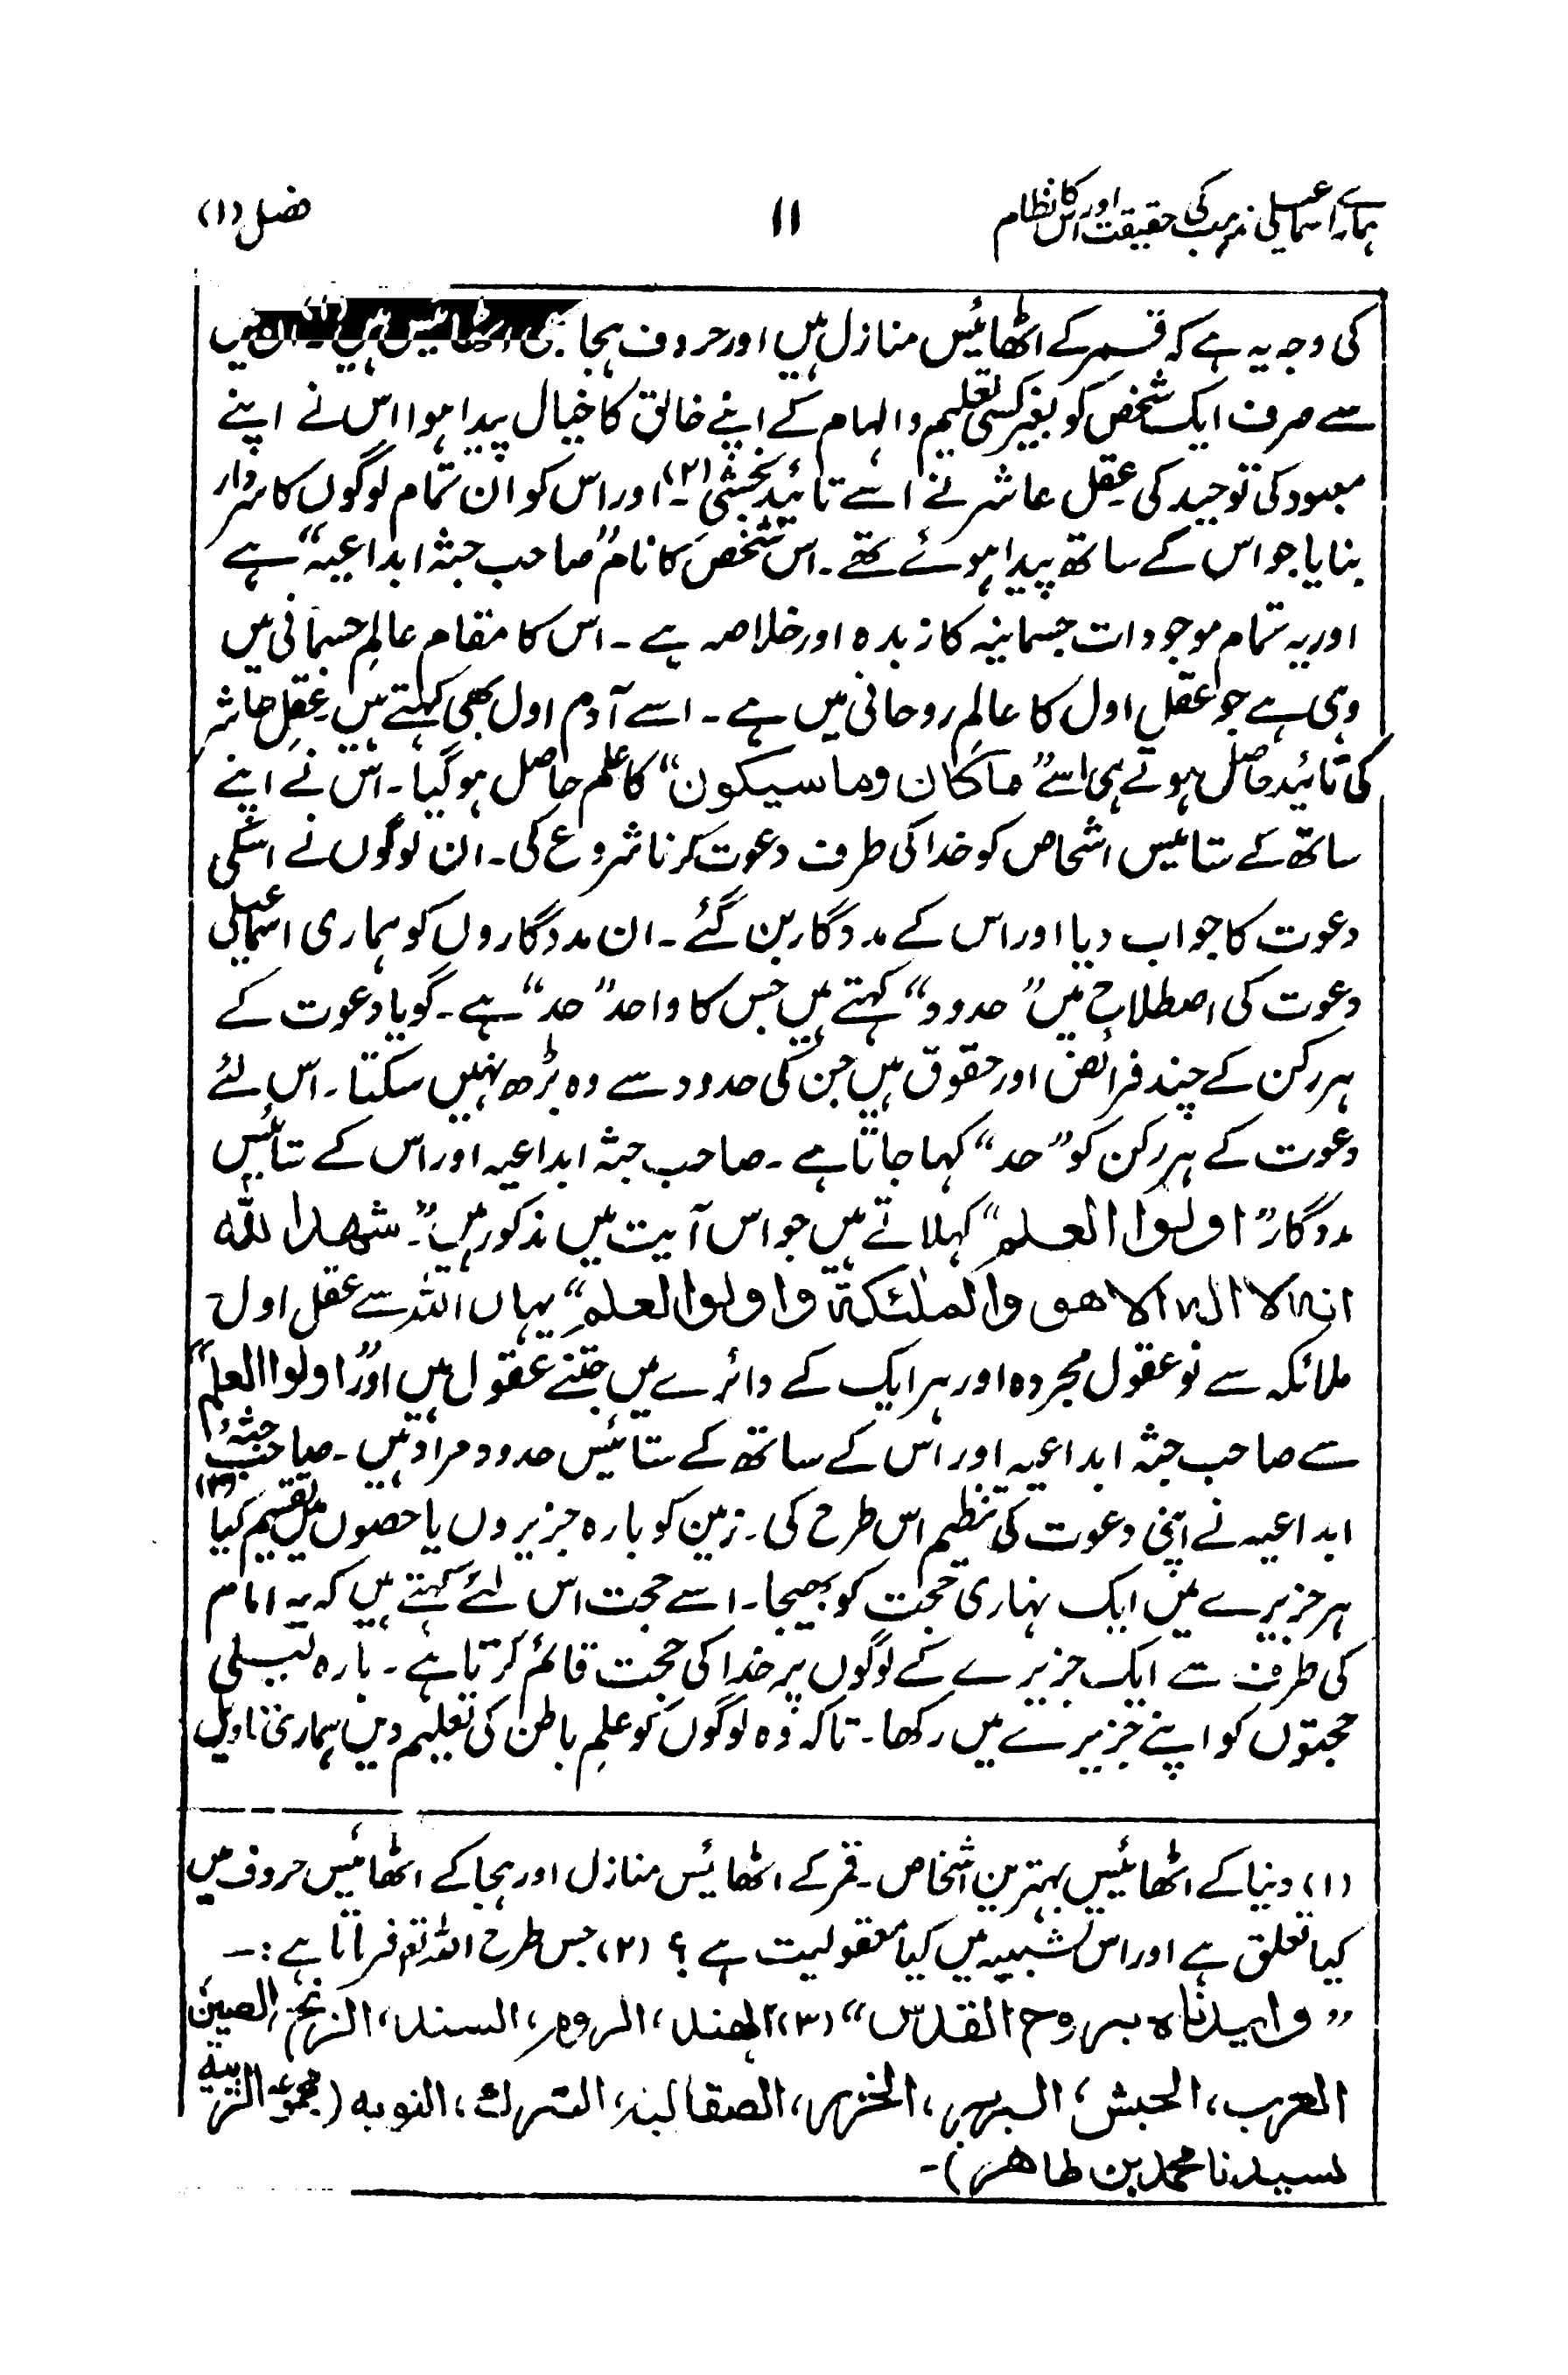 ہمارے اسماعیلی مذہب کی حقیقت اور اس کا نظام
۱۱
فصل (۱)
کی وجہ یہ ہے کہ قمر کے اٹھائیس منازل ہیں اور حروف ہجا بھی اٹھائیس ہیں۔ ان میں
سے صرف ایک شخص کو بغیر کسی تعلیم و الہام کے اپنے خالق کا خیال پیدا ہوا اس نے اپنے
معبود کی توحید کی عقل عاشر نے اسے تائید بخشی (۲)۔ اور اس کو ان تمام لوگوں کا سردار
بنایا جو اس کے ساتھ پیدا ہوئے تھے۔ اس شخص کا نام ”صاحب جثہ ابداعیہ“ ہے
اور یہ تمام موجودات جسمانیہ کا زبدہ اور خلاصہ ہے۔ اس کا مقام عالمِ جسمانی میں
وہی ہے جو عقل اول کا عالمِ روحانی میں ہے۔ اسے آدم اول بھی کہتے ہیں عقلِ عاشر
کی تائید حاصل ہوتے ہی اسے ”ماکان وما سیکون“ کا علم حاصل ہو گیا۔ اس نے اپنے
ساتھ کے ستائیس اشخاص کو خدا کی طرف دعوت کرنا شروع کی۔ ان لوگوں نے اسکی
دعوت کا جواب دیا اور اس کے مددگار بن گئے۔ ان مددگاروں کو ہماری اسماعیلی
دعوت کی اصطلاح میں ”حدود“ کہتے ہیں جس کا واحد ”حد“ ہے۔ گویا دعوت کے
ہر رکن کے چند فرائض اور حقوق ہیں جن کی حدود سے وہ بڑھ نہیں سکتا۔ اس لئے
دعوت کے ہر رکن کو ”حد“ کہا جاتا ہے۔ صاحب جثہ ابداعیہ اور اس کے ستائیس
مددگار ”اولوا العلم“ کہلاتے ہیں جو اس آیت میں مذکور ہیں ”۔ شھد اللہ
انہ لا الہ الا ھو والملٰئکة واولوا العلم“ یہاں اللہ سے عقل اول
ملائکہ سے نو عقول مجردہ اور ہر ایک کے دائرے میں جتنے عقول ہیں اور ”اولوا العلم“
سے صاحب جثہ ابداعیہ اور اس کے ساتھ کے ستائیس حدود مراد ہیں۔ صاحب جثہٴ
ابداعیہ نے اپنی دعوت کی تنظیم اس طرح کی۔ زمین کو بارہ جزیروں یا حصوں میں تقسیم کیا (۳)
ہر جزیرے میں ایک نہاری حجت کو بھیجا۔ اسے حجت اس لئے کہتے ہیں کہ یہ امام
کی طرف سے ایک جزیرے کے لوگوں پر خدا کی حجت قائم کرتا ہے۔ بارہ لیلی
حجتوں کو اپنے جزیرے میں رکھا۔ تاکہ وہ لوگوں کو علمِ باطن کی تعلیم دیں ہماری تاویل
(۱) دنیا کے اٹھائیس بہترین اشخاص۔ قمر کے اٹھائیس منازل اور ہجا کے اٹھائیس حروف میں
کیا تعلق ہے اور اس تشبیہ میں کیا معقولیت ہے؟ (۲) جس طرح اللہ تعہ فرماتا ہے:۔
”وایدناہ بروح القدس“ (۳) الھند، الروم، السند، الزنج، الصین
العرب، الحبش، البربر، الخزر، الصقالبہ، الترک، النوبہ (مجموع التربیة
لسیدنا محمد بن طاھر)۔